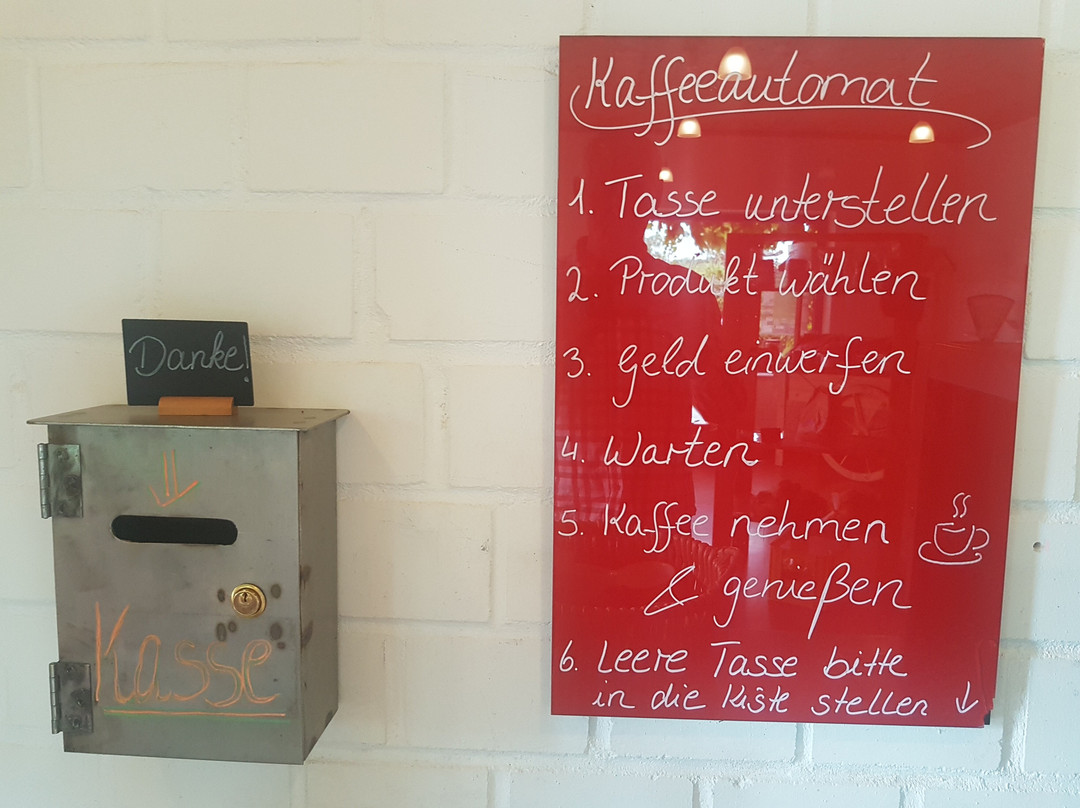 Danke!
Kasse
Kaffeeautomat
1. Tasse unterstellen
2. Produkt wählen
3. Geld einwerfen
4. Warten
5. Kaffee nehmen
& genießen
6. Leere Tasse bitte
in die Kiste stellen ↓